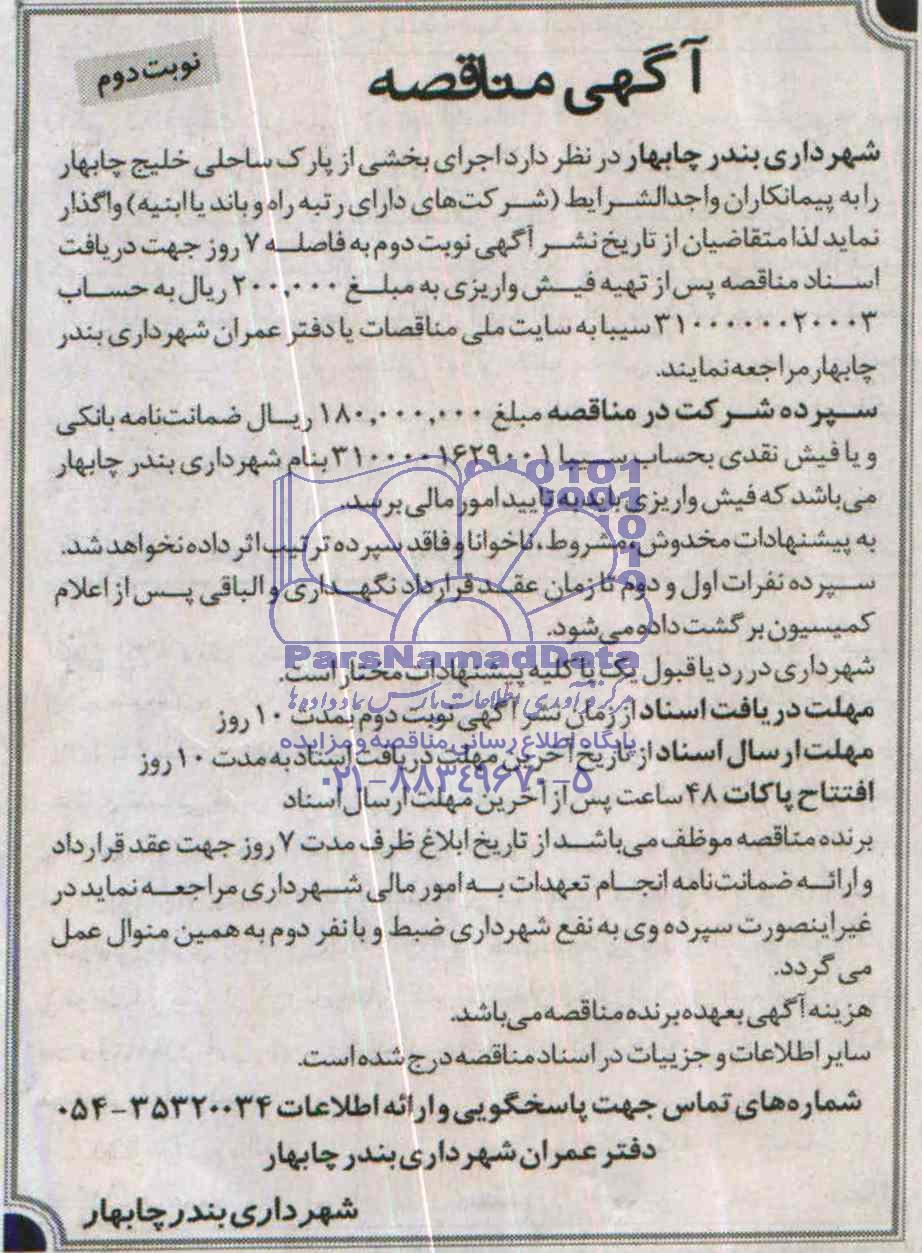 آگهی مناقصه
نوبت دوم
شهرداری بندر چابهار در نظر دارد اجرای بخشی از پارک ساحلی خلیج چابهار
را به پیمانکاران واجدالشرایط (شرکت‌های دارای رتبه راه و باند یا ابنیه) واگذار
نماید لذا متقاضیان از تاریخ نشر آگهی نوبت دوم به فاصله ۷ روز جهت دریافت
اسناد مناقصه پس از تهیه فیش واریزی به مبلغ ۲۰۰,۰۰۰ ریال به حساب
۳۱۰۰۰۰۰۰۲۰۰۰۳ سیبا به سایت ملی مناقصات یا دفتر عمران شهرداری بندر
چابهار مراجعه نمایند.
سپرده شرکت در مناقصه مبلغ ۱۸۰,۰۰۰,۰۰۰ ریال ضمانت‌نامه بانکی
و یا فیش نقدی بحساب سیبا ۳۱۰۰۰۰۱۶۲۹۰۰۱ بنام شهرداری بندر چابهار
می‌باشد که فیش واریزی باید به تایید امور مالی برسد.
به پیشنهادات مخدوش، مشروط، ناخوانا و فاقد سپرده ترتیب اثر داده نخواهد شد.
سپرده نفرات اول و دوم تا زمان عقد قرارداد نگهداری و الباقی پس از اعلام
کمیسیون برگشت داده می‌شود.
شهرداری در رد یا قبول یک یا کلیه پیشنهادات مختار است.
مهلت دریافت اسناد از زمان نشر آگهی نوبت دوم بمدت ۱۰ روز
مهلت ارسال اسناد از تاریخ آخرین مهلت دریافت اسناد به مدت ۱۰ روز
افتتاح پاکات ۴۸ ساعت پس از آخرین مهلت ارسال اسناد
برنده مناقصه موظف می‌باشد از تاریخ ابلاغ ظرف مدت ۷ روز جهت عقد قرارداد
و ارائه ضمانت‌نامه انجام تعهدات به امور مالی شهرداری مراجعه نماید در
غیر اینصورت سپرده وی به نفع شهرداری ضبط و با نفر دوم به همین منوال عمل
می گردد.
هزینه آگهی بعهده برنده مناقصه می‌باشد.
سایر اطلاعات و جزییات در اسناد مناقصه درج شده است.
شماره‌های تماس جهت پاسخگویی و ارائه اطلاعات ۳۵۳۲۰۰۳۴-۰۵۴
دفتر عمران شهرداری بندر چابهار
شهرداری بندر چابهار
ParsNamadData
مرکز فرآوری اطلاعات پارس نماد داده‌ها
پایگاه اطلاع رسانی مناقصه و مزایده
۰۲۱-۸۸۳۴۹۶۷۰-۵